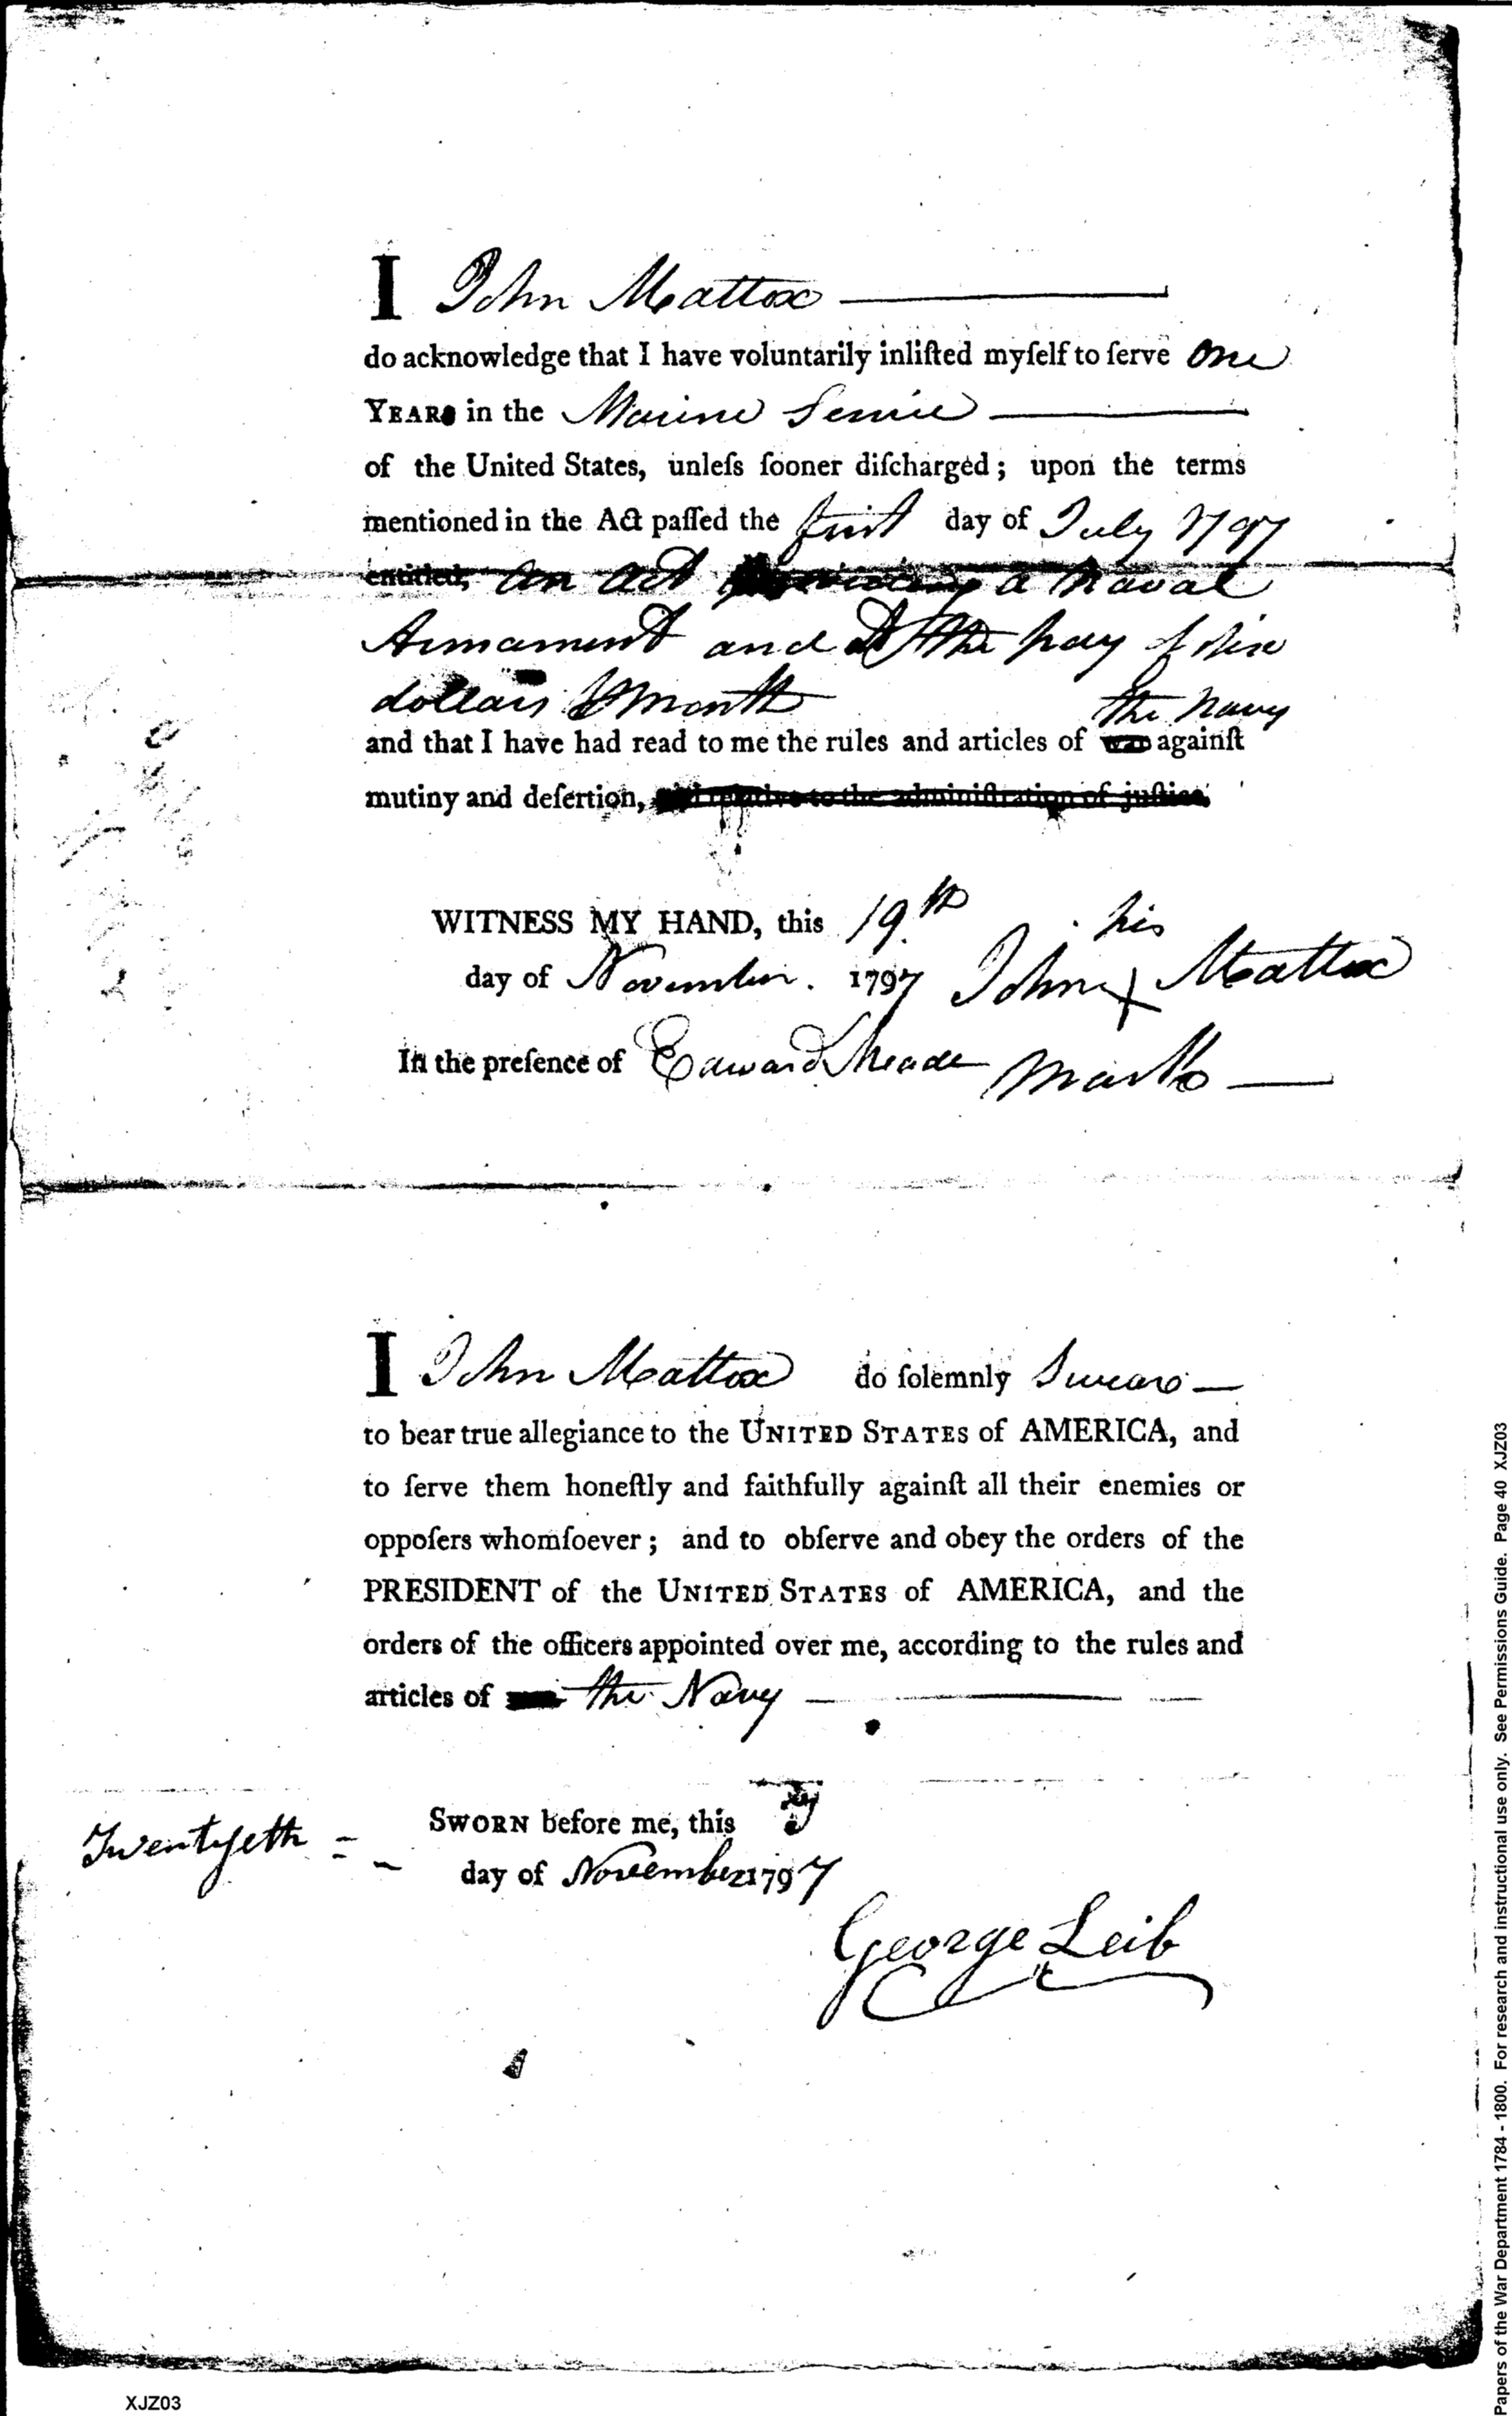 I John Mattox
do acknowledge that I have voluntarily inliſted myſelf to ſerve one
YEARS in the Marine Service
of the United States, unleſs ſooner diſcharged; upon the terms
mentioned in the Act paſſed the first day of July 1797
entitled, an act a Naval
Armament and the pay of
dollars month
the Navy
and that I have had read to me the rules and articles of war againſt
mutiny and deſertion, relative to the adminiſtration of juſtice.
WITNESS MY HAND, this 19.th his
day of November. 1797 John X Mattox
In the preſence of Edward Meade mark
I John Mattox do ſolemnly Swear
to bear true allegiance to the UNITED STATES of AMERICA, and
to ſerve them honeſtly and faithfully againſt all their enemies or
oppoſers whomſoever; and to obſerve and obey the orders of the
PRESIDENT of the UNITED STATES of AMERICA, and the
orders of the officers appointed over me, according to the rules and
articles of the Navy
SWORN before me, this
Twentyeth =
day of November 1797
George Leib
XJZ03
Papers of the War Department 1784 - 1800. For research and instructional use only. See Permissions Guide. Page 40 XJZ03